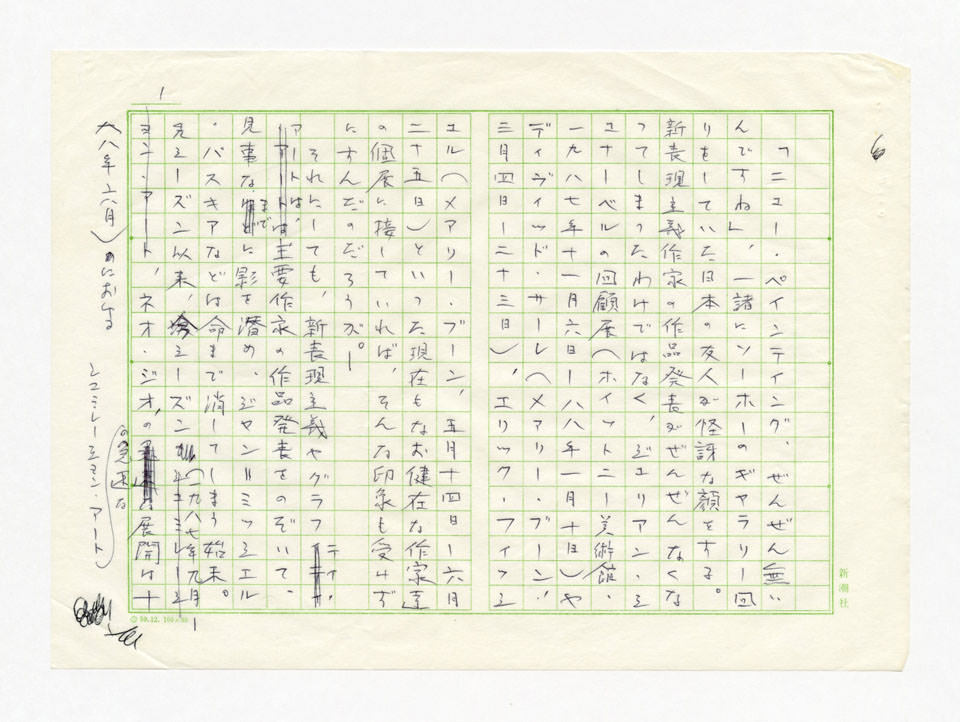 6
「ニュー・ペインティング、ぜんぜん無い
んですね」、一諸にソーホーのギャラリー回
りをしていた日本の友人が怪訝な顔をする。
新表現主義作家の作品発表がぜんぜんなくな
ってしまったわけではなく、ジュリアン・シ
ュナーベルの回顧展(ホイットニー美術館、
一九八七年十一月六日ー八八年一月十日)や
ディヴィッド・サーレ(メアリー・ブーン、
三月四日ー二十三日)、エリック・フィッシ
ュル(メアリー・ブーン、五月十四日ー六月
二十五日)といった現在もなお健在な作家達
の個展に接していれば、そんな印象も受けず
にすんだのだろうが。
それにしても、新表現主義やグラフィティ・
アートは、主要作家の作品発表をのぞいて、
見事なまでに影を潜め、ジャン=ミッシェル
・バスキアなどは命まで消してしまう始末。
見シーズン以来、シーズン(一九八七年九月ー
八八年六月)における
シュミレーション・アート、ネオ・ジオ、の急速な展開は十
新潮社